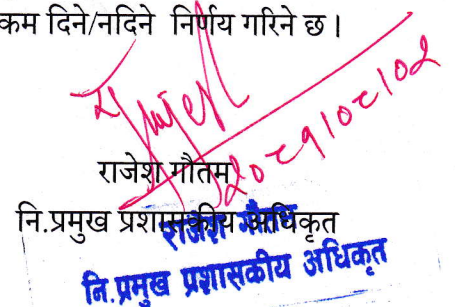 कम दिने/नदिने निर्णय गरिने छ ।
२०८१/०८/०२
राजेश गौतम
नि.प्रमुख प्रशासकीय अधिकृत
राजेश गौतम
नि.प्रमुख प्रशासकीय अधिकृत